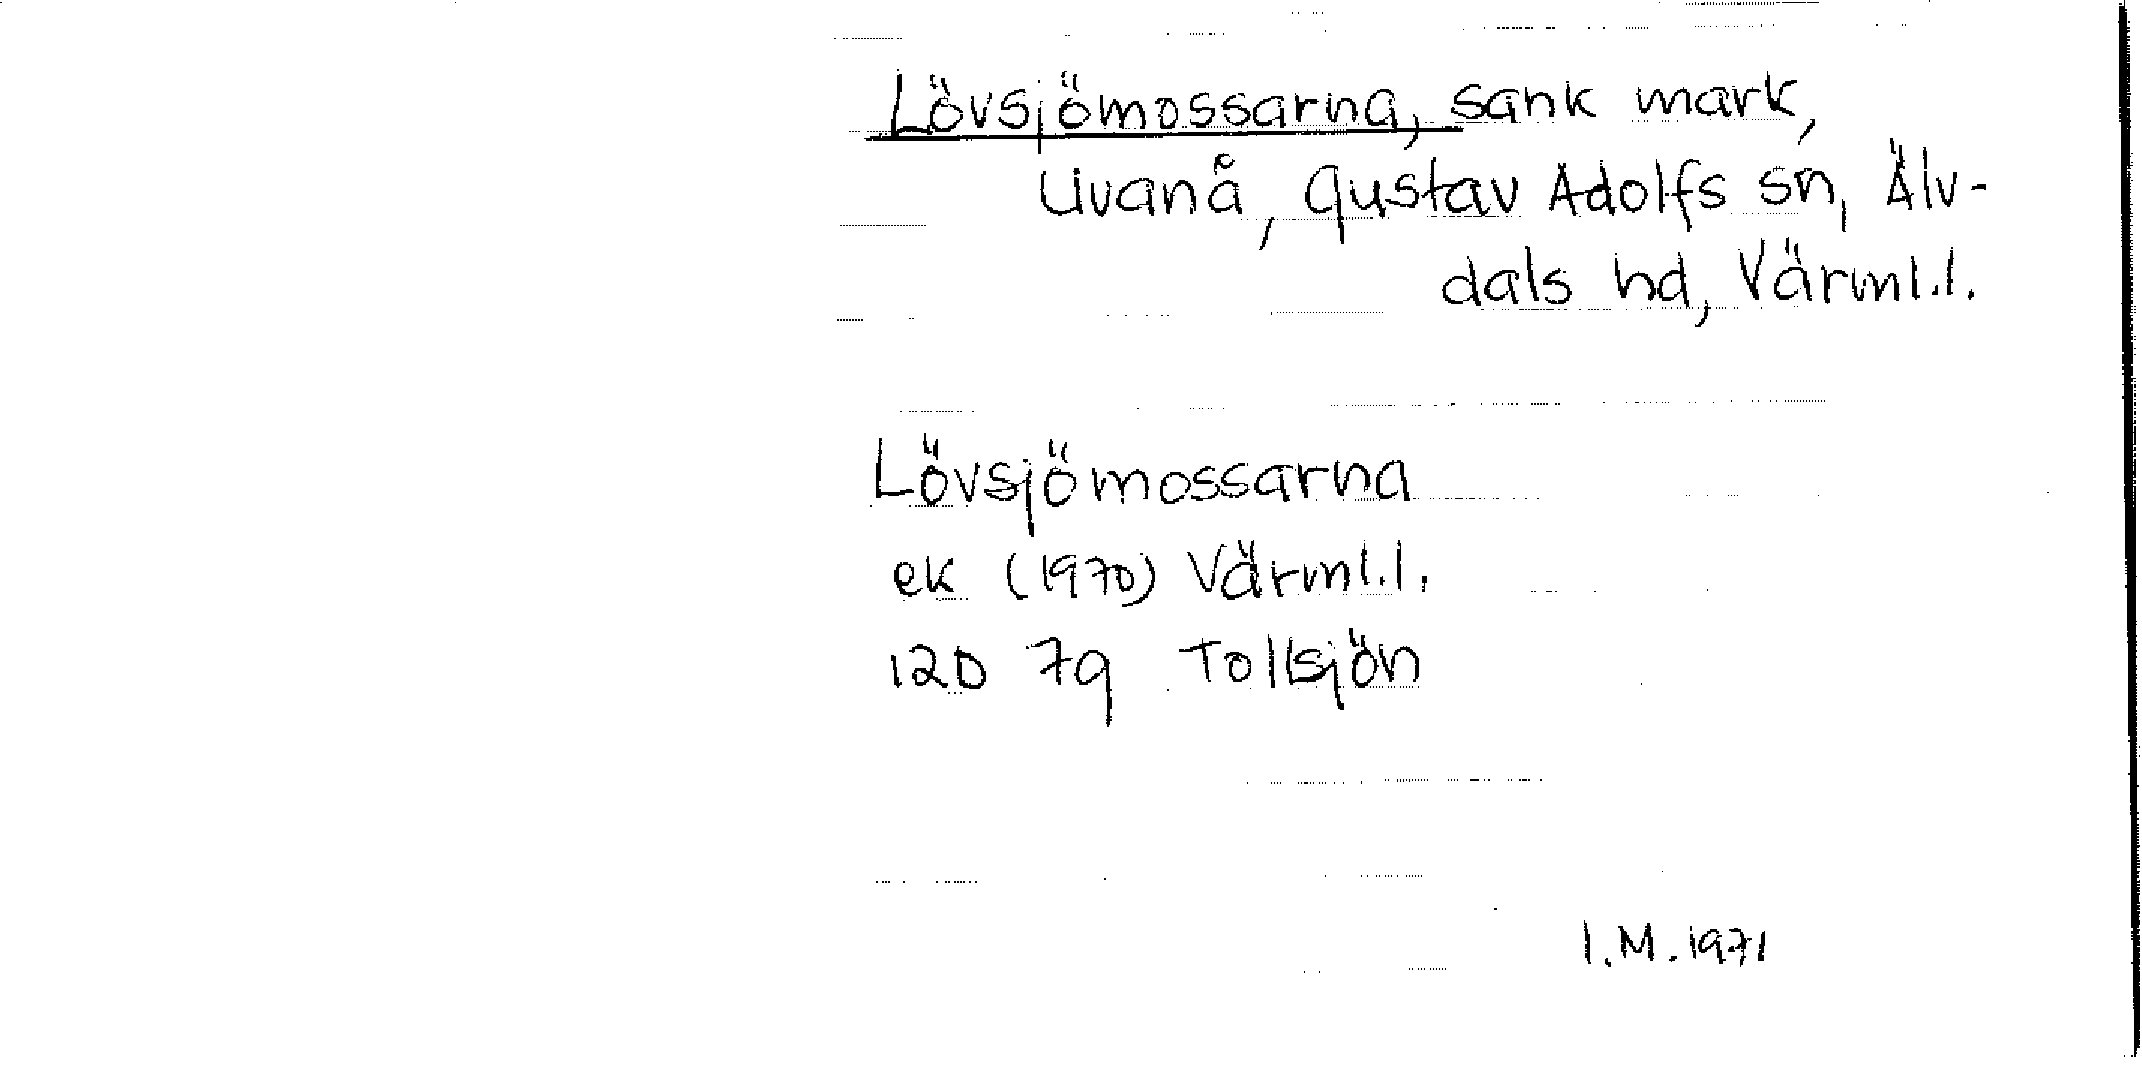 Lövsjömossarna, sank mark,
Uvanå, Gustav Adolfs sn, Älv-
dals hd, Värml.l.
Lövsjömossarna
ek (1970) Värml.l.
12D 7g Tollsjön
I.M. 1971